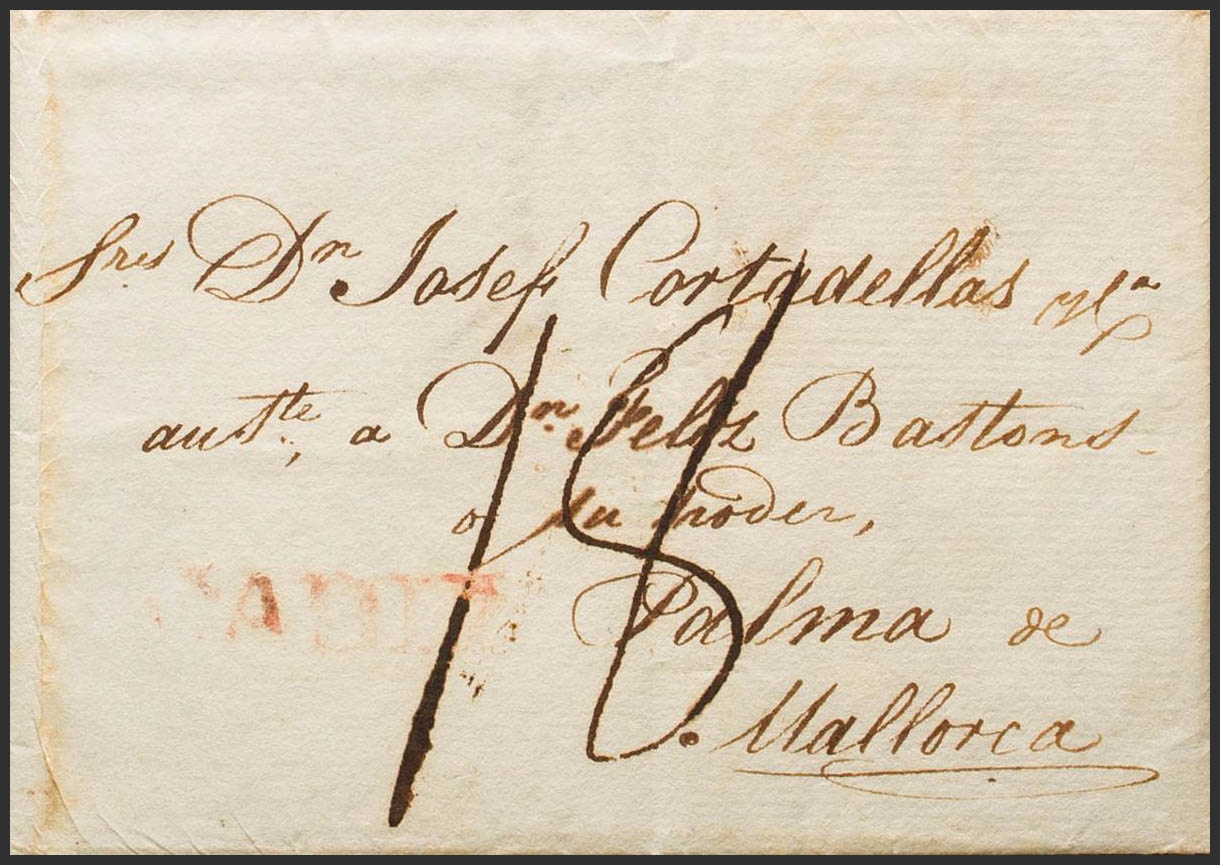 Sres Dn. Josef Cortadellas y Ca
auste, a Dn. Feliz Bastons
o su poder,
CADIZ
Palma de
Mallorca
18